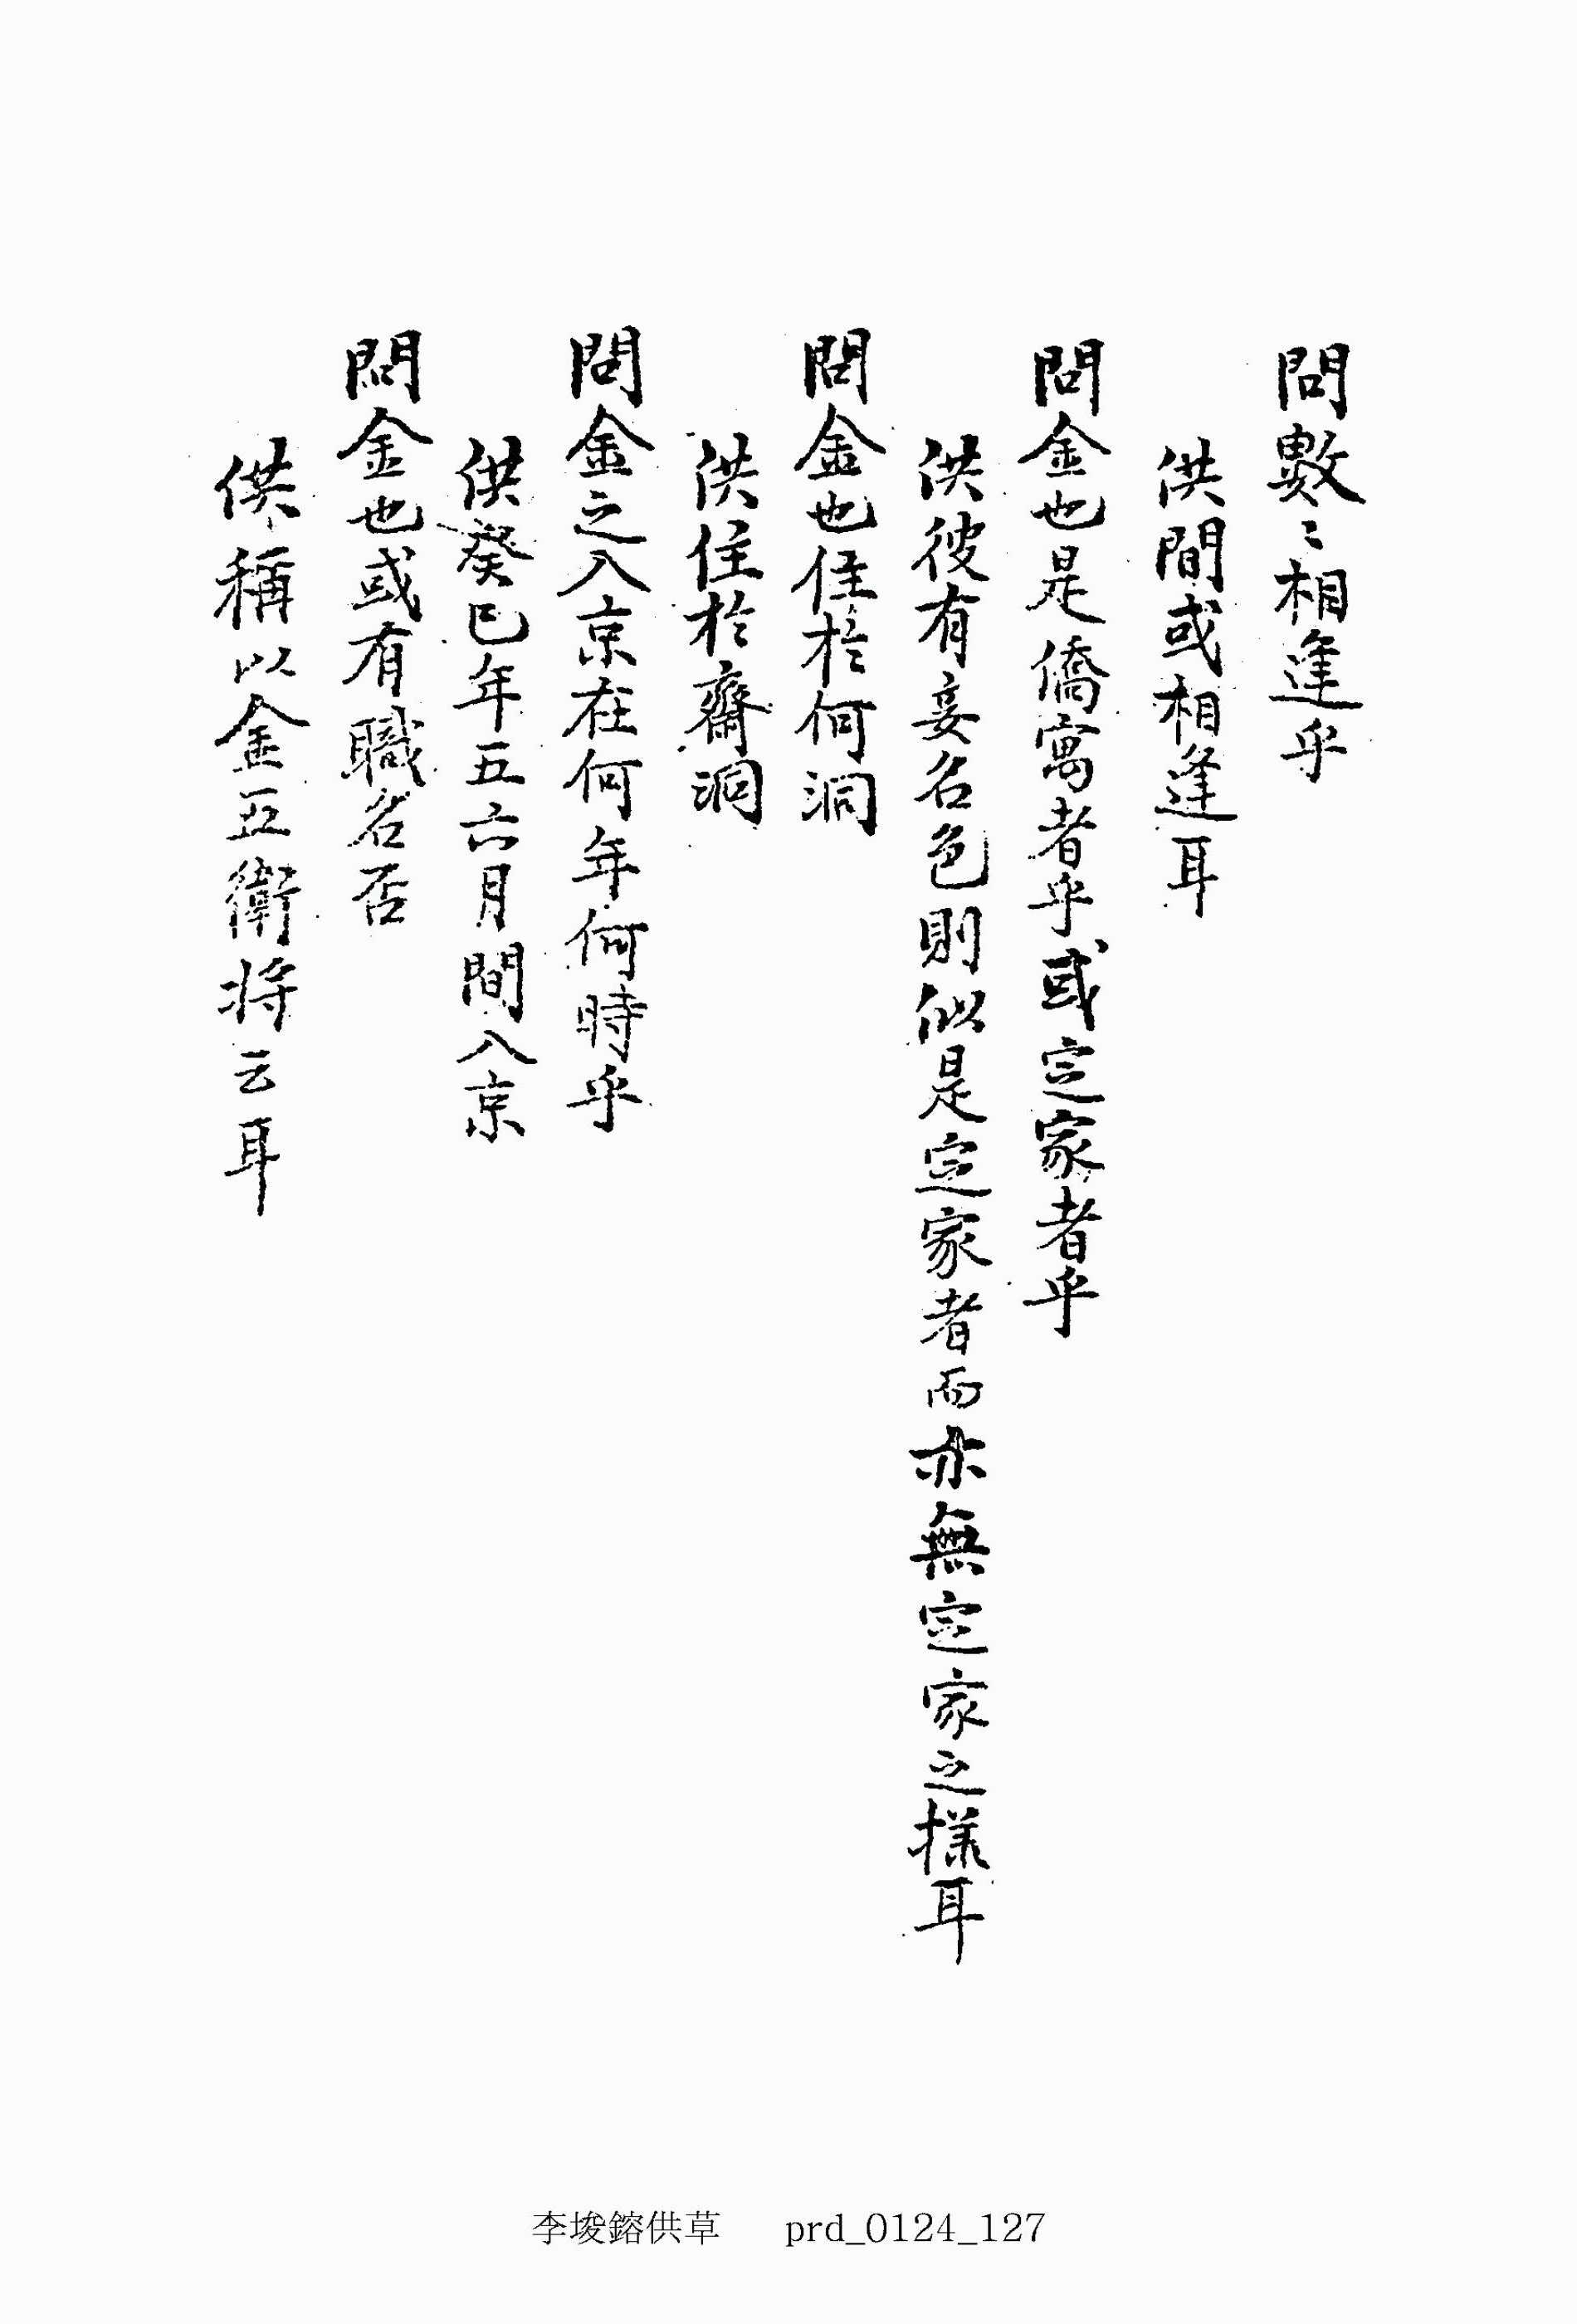 問數〻相逢乎
供間或相逢耳
問金也是僑寓者乎或定家者乎
供彼有妾名色則似是定家者而亦無定家之樣耳
問金也住於何洞
供住於齋洞
問金之入京在何年何時乎
供癸巳年五六月間入京
問金也或有職名否
供稱以金五衛將云耳
李埈鎔供草 prd_0124_127